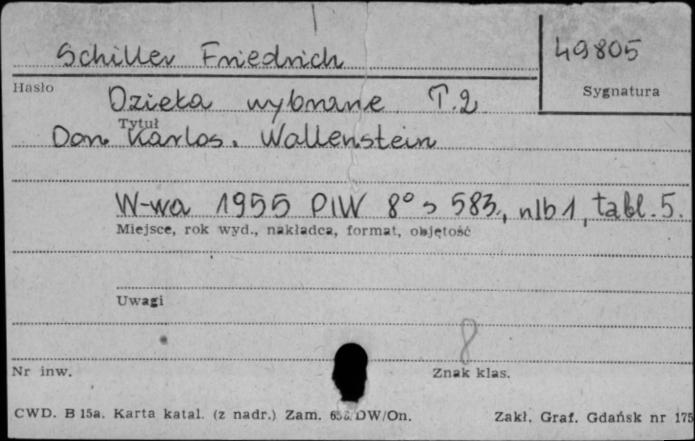 Schiller Friedrich
49805
Hasło
Sygnatura
Dzieła wybrane T.2
Tytuł
Don Karlos. Wallenstein
W-wa 1955 PIW 8° s 583, nlb 1, tabl. 5.
Miejsce, rok wyd., nakładca, format, objętość
Uwagi
8
Nr inw.
Znak klas.
CWD. B 15a. Karta katal. (z nadr.) Zam. DW/On.
Zakł. Graf. Gdańsk nr 175